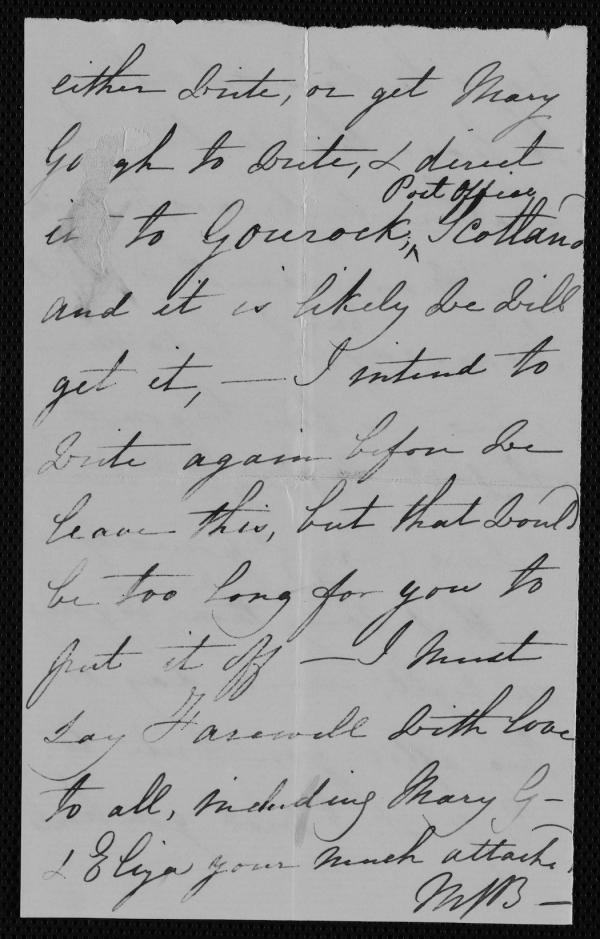 either write, or get Mary
Gough to write, & direct
Post Office
it to Gourock, Scotland
and it is likely we will
get it, — I intend to
write again before we
leave this, but that would
be too long for you to
put it off — I must
say Farewell with love
to all, including Mary G—
& Eliza your much attach'd
MJB —